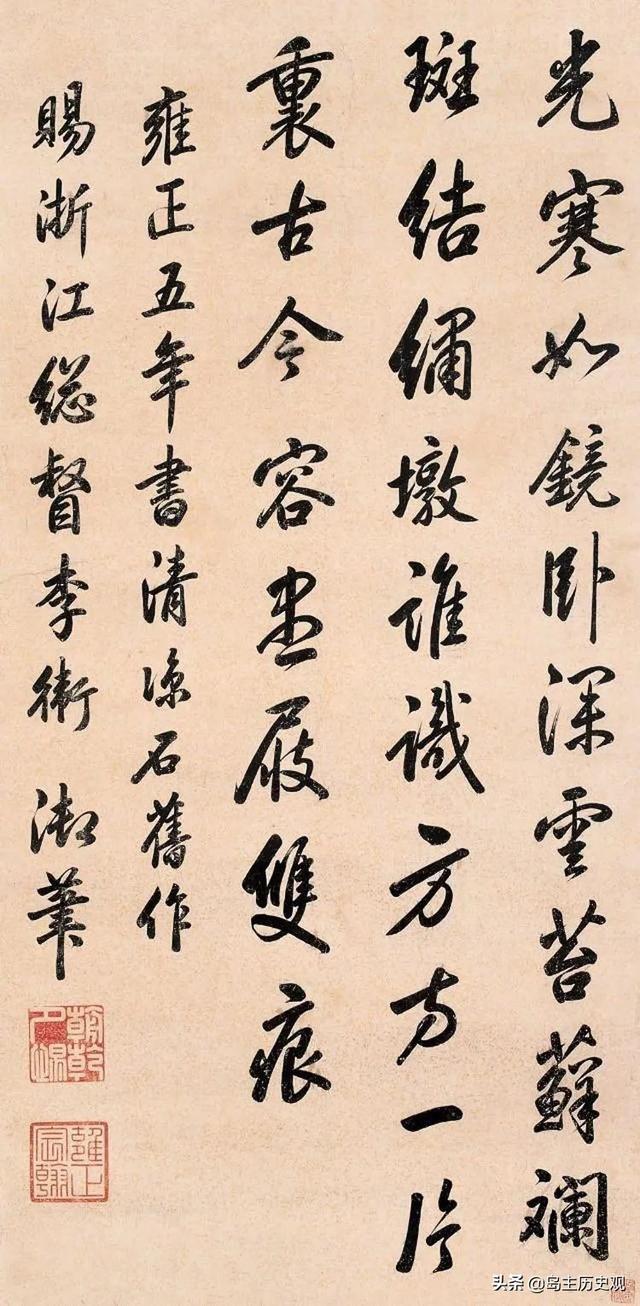 光寒如鏡卧深雲苔蘚斕
斑結繡墩誰識方方一片
裏古今容盡屐雙痕
雍正五年書清涼石舊作
賜浙江總督李衛 御筆
朝乾夕惕
雍正宸翰
头条 @岛主历史观